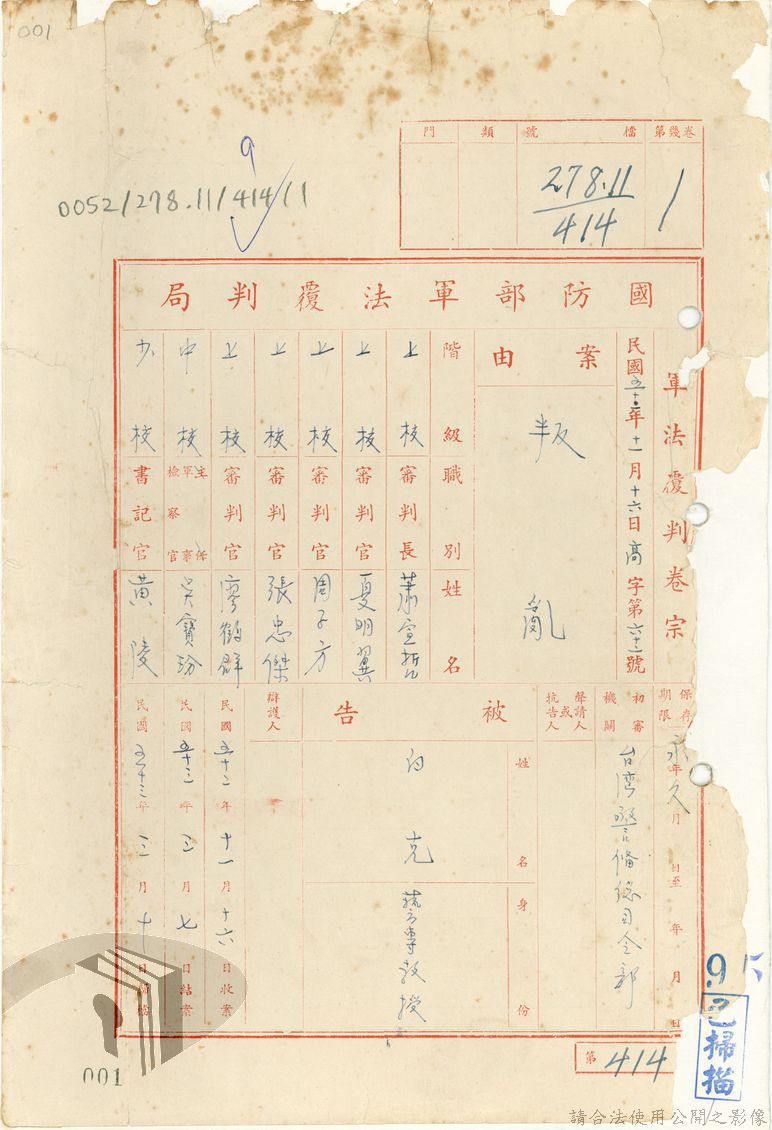 001
9
0052/278.11/414/1
第幾卷
1
檔號
278.11/414
類
門
國防部軍法覆判局
軍法覆判卷宗
民國五十二年十一月十六日高字第六十一號
案由
叛亂
階級 職別 姓名
上校 審判長 蕭宣哲
上校 審判官 夏明翼
上校 審判官 周子方
上校 審判官 張忠傑
上校 審判官 廖鶴群
中校 主任軍事檢察官 吳寶玢
少校 書記官 黃陵
保存期限 永久 年 月 日至 年 月 日
初審機關 台灣警備總司令部
聲請人或抗告人
被告
姓名 白克
身份 藝專教授
辯護人
民國五十二年十一月十六日收案
民國五十三年三月七日結案
民國五十三年三月十日歸檔
第414
9.
已掃描
001
請合法使用公開之影像